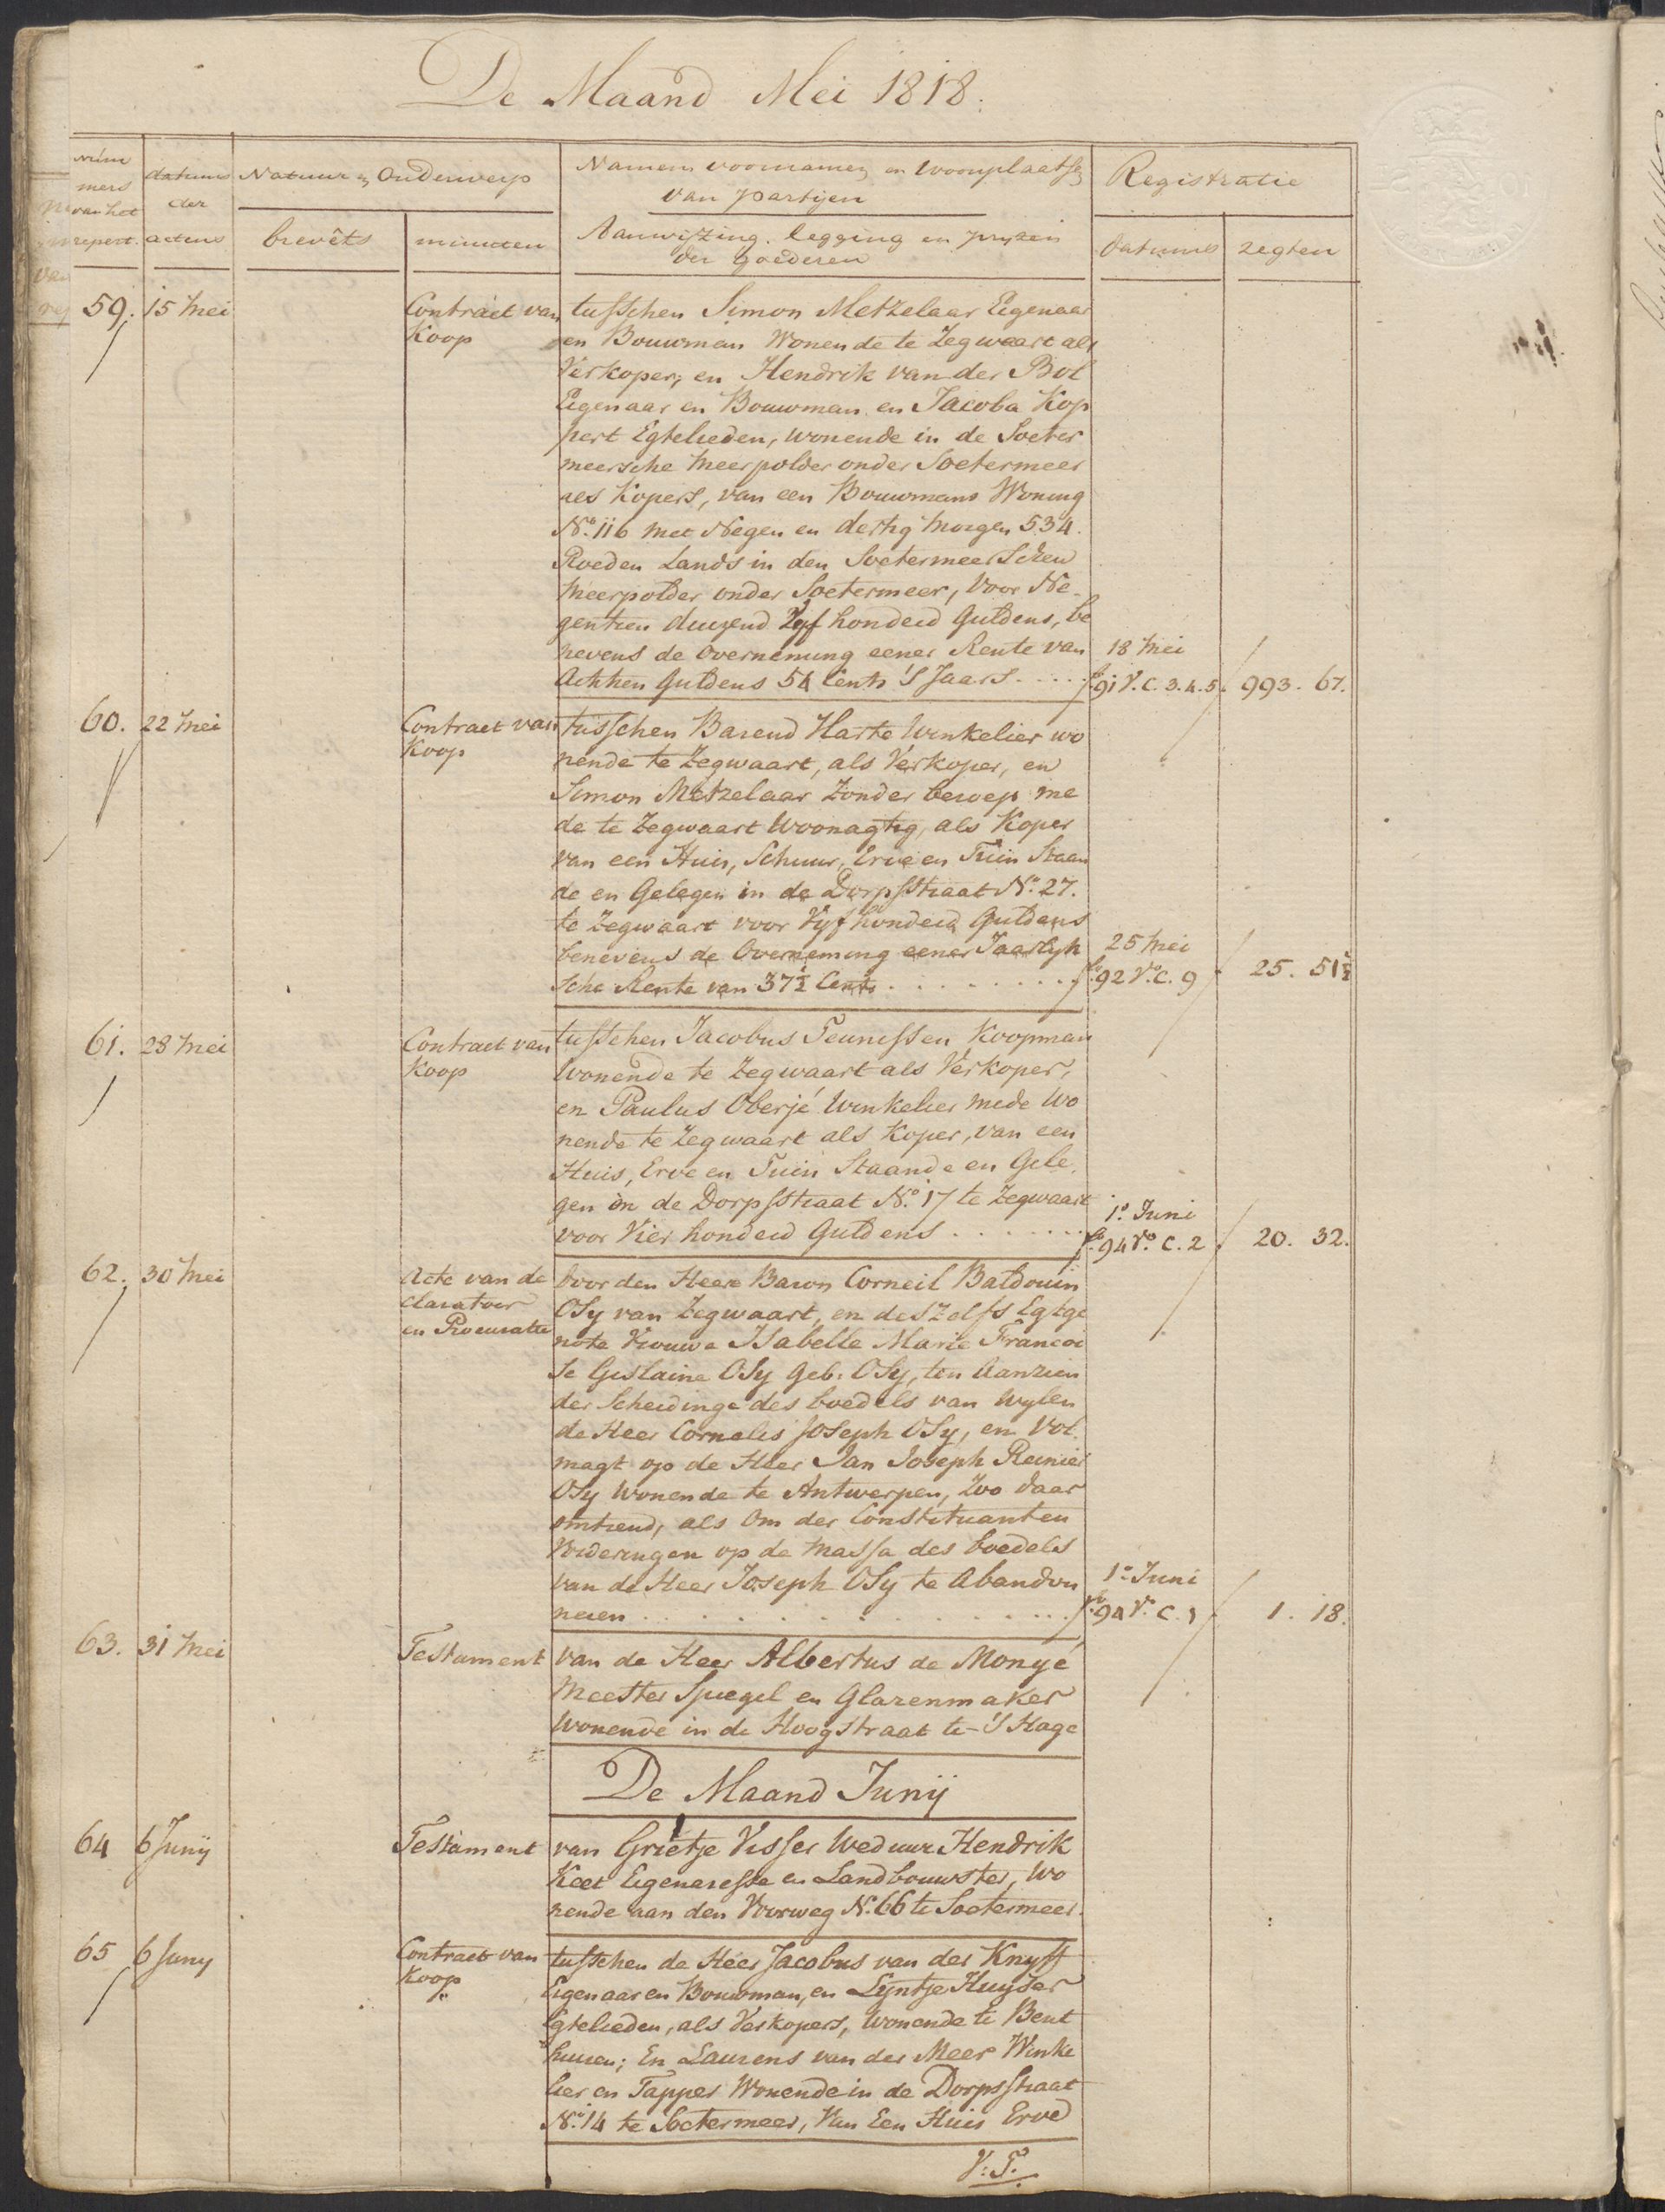 De Maand Mei 1818.
Num
mers
van het
repert.
datums
der
actens
Natuur en Onderwerp
brevêts
minuten
Namen voornamen en woonplaatsen
van partijen
Aanwijzing. legging en prijzen
der goederen
Registratie
datums
regten
59. 15 Mei Contract van
Koop
tusschen Simon Metzelaar Eigenaar
en Bouwman Wonende te Zegwaart als
Verkoper; en Hendrik van der Bol
Eigenaar en Bouwman en Jacoba Kop
pert Egtelieden, wonende in de Soeter
meersche Meerpolder onder Soetermeer
als Kopers, van een Bouwmans Woning
No. 116 met Negen en dertig Morgen 534.
Roeden Lands in den Soetermeerschen
Meerpolder onder Soetermeer, Voor Ne-
gentien duizend Vyf honderd Guldens, be
nevens de Overneming eener Rente van
Achtien Guldens 54 Cents 'S Jaars .....
18 Mei
fo. 91 V. C. 3. 4. 5. 993. 67.
60. 22 Mei Contract van
Koop
tusschen Barend Harte Winkelier wo
nende te Zegwaart, als Verkoper, en
Simon Metzelaar Zonder beroep me
de te Zegwaart Woonagtig, als Koper
van een Huis, Schuur, Erve en Tuin Staan
de en Gelegen in de Dorpsstraat No. 27.
te Zegwaart voor Vyf honderd Guldens
benevens de Overneming eener Jaarlyk
sche Rente van 37½ Cents ........
25 Mei
fo. 92 Vo. C. 9 25. 51½
61. 28 Mei Contract van
Koop
tusschen Jacobus Teunissen Koopman
Wonende te Zegwaart als Verkoper,
en Paulus Oberjé Winkelier mede Wo
nende te Zegwaart als Koper, van een
Huis, Erve en Tuin Staande en Gele.
gen in de Dorpsstraat No. 17 te Zegwaart
voor Vier honderd Guldens .......
1o. Juni
fo. 94 Vo. C. 2 20. 32.
62. 30 Mei Acte van de
claratoir
en Procuratie
Door den Heere Baron Corneil Baldouin
OSy van Zegwaart, en deszelfs Egtge
note Vrouwe ISabelle Marie Francoi
se Gislaine OSy Geb: OSy, ten Aanzien
der Scheidinge des boedels van Wylen
de Heer Cornelis Joseph OSy, en Vol.
magt op de Heer Jan Joseph Reinier
OSy Wonende te Antwerpen, Zoo daar
omtrend, als Om der Constituanten
Vorderingen op de Massa des boedels
van de Heer Joseph OSy te Abandon
neren ...........
1o. Juni
fo. 94 Vo. C. 1 1. 18.
63. 31 Mei Testament
van de Heer Albertus de Monyé
Meester Spiegel en Glazenmaker
Wonende in de Hoogstraat te 'S Hage
De Maand Junij
64 6 Junij Testament
van Grietje Visser Weduwe Hendrik
Keet Eigeneresse en Landbouwster, Wo
nende aan den Voorweg N. 66 te Soetermeer.
65 6 Juny Contract van
Koop
tusschen de Heer Jacobus van der Knyff
Eigenaar en Bouwman, en Lyntje Huyser
Egtelieden, als Verkopers, Wonende te Bent
huisen; En Laurens van der Meer Winke
lier en Tapper Wonende in de Dorpsstraat
No. 14 te Soetermeer, Van Een Huis Erve
V: T.